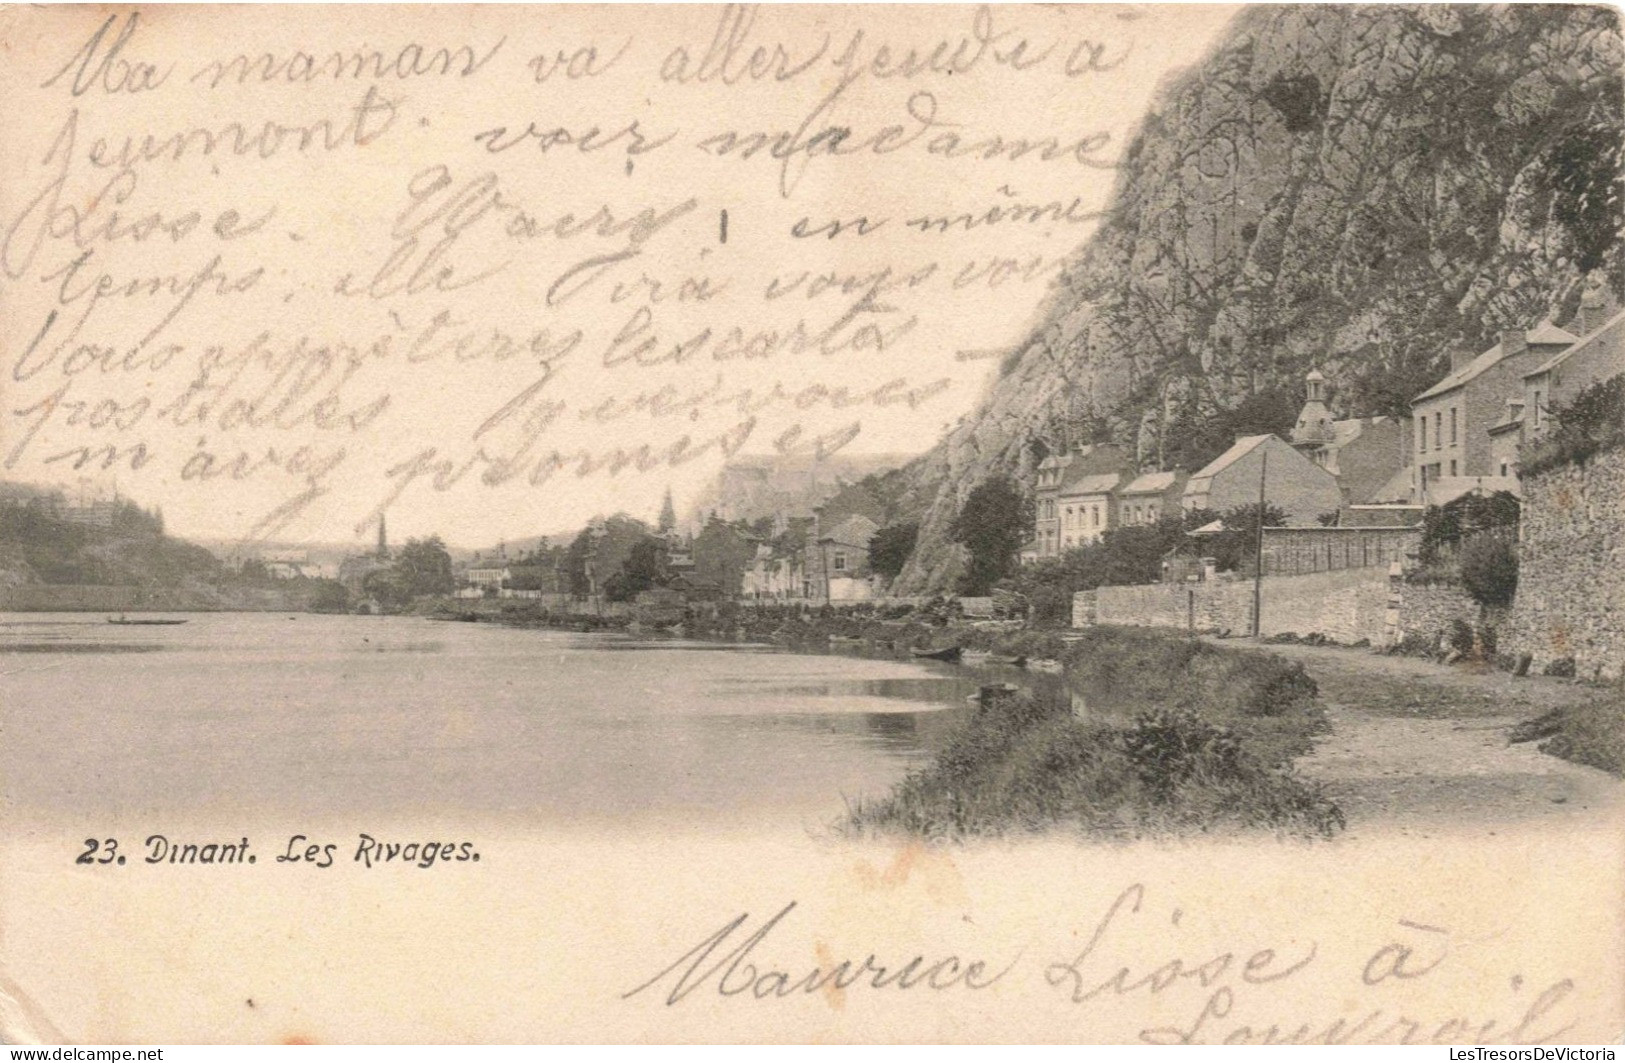 Ma maman va aller jeudi à
Jeumont. voir madame
Lisse. en même
temps. elle ira vous voir
Vous apprêteres les carta
postales que vous
m'aves promises
23. Dinant. Les Rivages.
Maurice Lisse à
Louvroil
LesTresorsDeVictoria